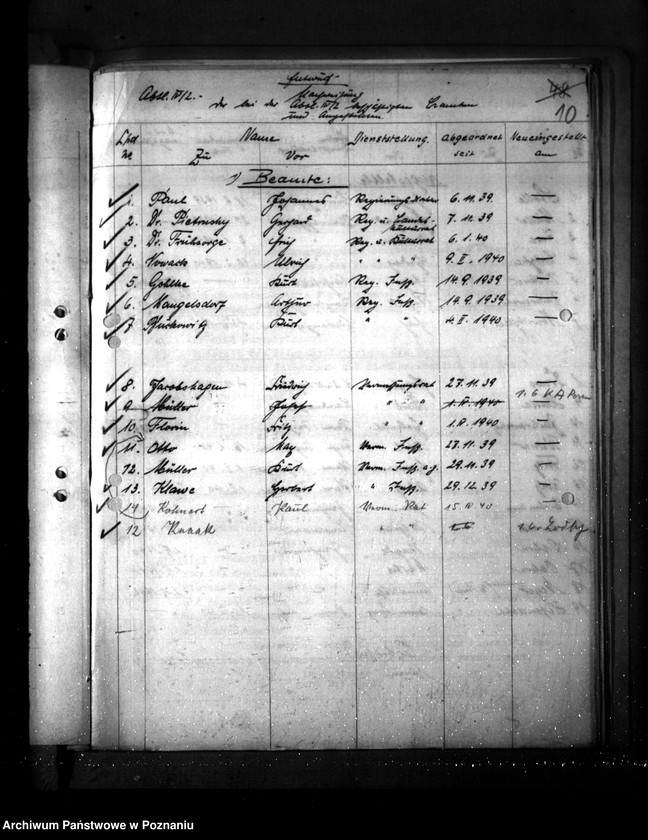 Entwurf
Abtl. IV/2.-
Nachweisung
der bei der Abtl. IV/2 beschäftigten Beamten
und Angestellten.
10
Lfd Nr. Name Dienststellung. abgeordnet seit Neueingestellt am
Zu Vor
1) Beamte:
1. Paul Johannes 6.11.39.
2. Dr. Pietrusky Gerhard Reg. u. Landeskulturrat 7.11.39
3. Dr. Frühsorge Erich Reg. u. Kulturrat 6.1.40
4. Nowack Ulrich " " " 9.I.1940
5. Gohlke Kurt Reg. Insp. 14.9.1939
6. Mangelsdorf Arthur Reg. Insp. 14.9.1939
7. Kurt " " 4.II.1940
8. Jacobshagen Friedrich Vermessungsrat 27.11.39
9. Müller Josef " " 1.II.1940
10. Florin Fritz " " 1.II.1940
11. Otto Max Verm. Insp. 27.11.39
12. Müller Kurt Verm. Insp. a.g. 29.11.39
13. Klawe Herbert " Insp. 29.12.39
14 Kohnert Paul Verm. Rat 15.II.40
12 Knaak " "
Archiwum Państwowe w Poznaniu